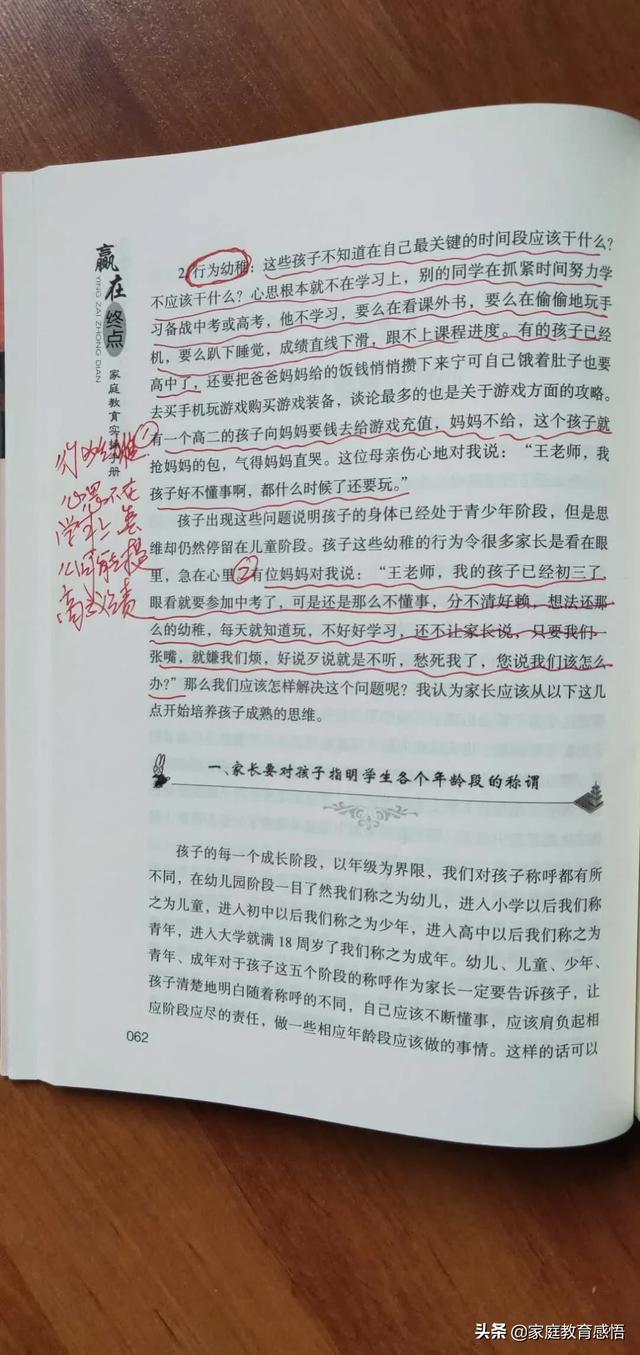 赢在终点
YING ZAI ZHONG DIAN
家庭教育实操手册
2.行为幼稚：这些孩子不知道在自己最关键的时间段应该干什么？
不应该干什么？心思根本就不在学习上，别的同学在抓紧时间努力学
习备战中考或高考，他不学习，要么在看课外书，要么在偷偷地玩手
机，要么趴下睡觉，成绩直线下滑，跟不上课程进度。有的孩子已经
高中了，还要把爸爸妈妈给的饭钱悄悄攒下来宁可自己饿着肚子也要
去买手机玩游戏购买游戏装备，谈论最多的也是关于游戏方面的攻略。
有一个高二的孩子向妈妈要钱去给游戏充值，妈妈不给，这个孩子就
抢妈妈的包，气得妈妈直哭。这位母亲伤心地对我说：“王老师，我
孩子好不懂事啊，都什么时候了还要玩。”
孩子出现这些问题说明孩子的身体已经处于青少年阶段，但是思
维却仍然停留在儿童阶段。孩子这些幼稚的行为令很多家长是看在眼
里，急在心里②有位妈妈对我说：“王老师，我的孩子已经初三了，
眼看就要参加中考了，可是还是那么不懂事，分不清好赖，想法还那
么的幼稚，每天就知道玩，不好好学习，还不让家长说，只要我们一
张嘴，就嫌我们烦，好说歹说就是不听，愁死我了，您说我们该怎么
办？”那么我们应该怎样解决这个问题呢？我认为家长应该从以下这几
点开始培养孩子成熟的思维。
①
行为幼稚
心思不在
学习上
高成绩
一、家长要对孩子指明学生各个年龄段的称谓
孩子的每一个成长阶段，以年级为界限，我们对孩子称呼都有所
不同，在幼儿园阶段一目了然我们称之为幼儿，进入小学以后我们称
之为儿童，进入初中以后我们称之为少年，进入高中以后我们称之为
青年，进入大学就满 18 周岁了我们称之为成年。幼儿、儿童、少年、
青年、成年对于孩子这五个阶段的称呼作为家长一定要告诉孩子，让
孩子清楚地明白随着称呼的不同，自己应该不断懂事，应该肩负起相
应阶段应尽的责任，做一些相应年龄段应该做的事情。这样的话可以
062
头条 @家庭教育感悟